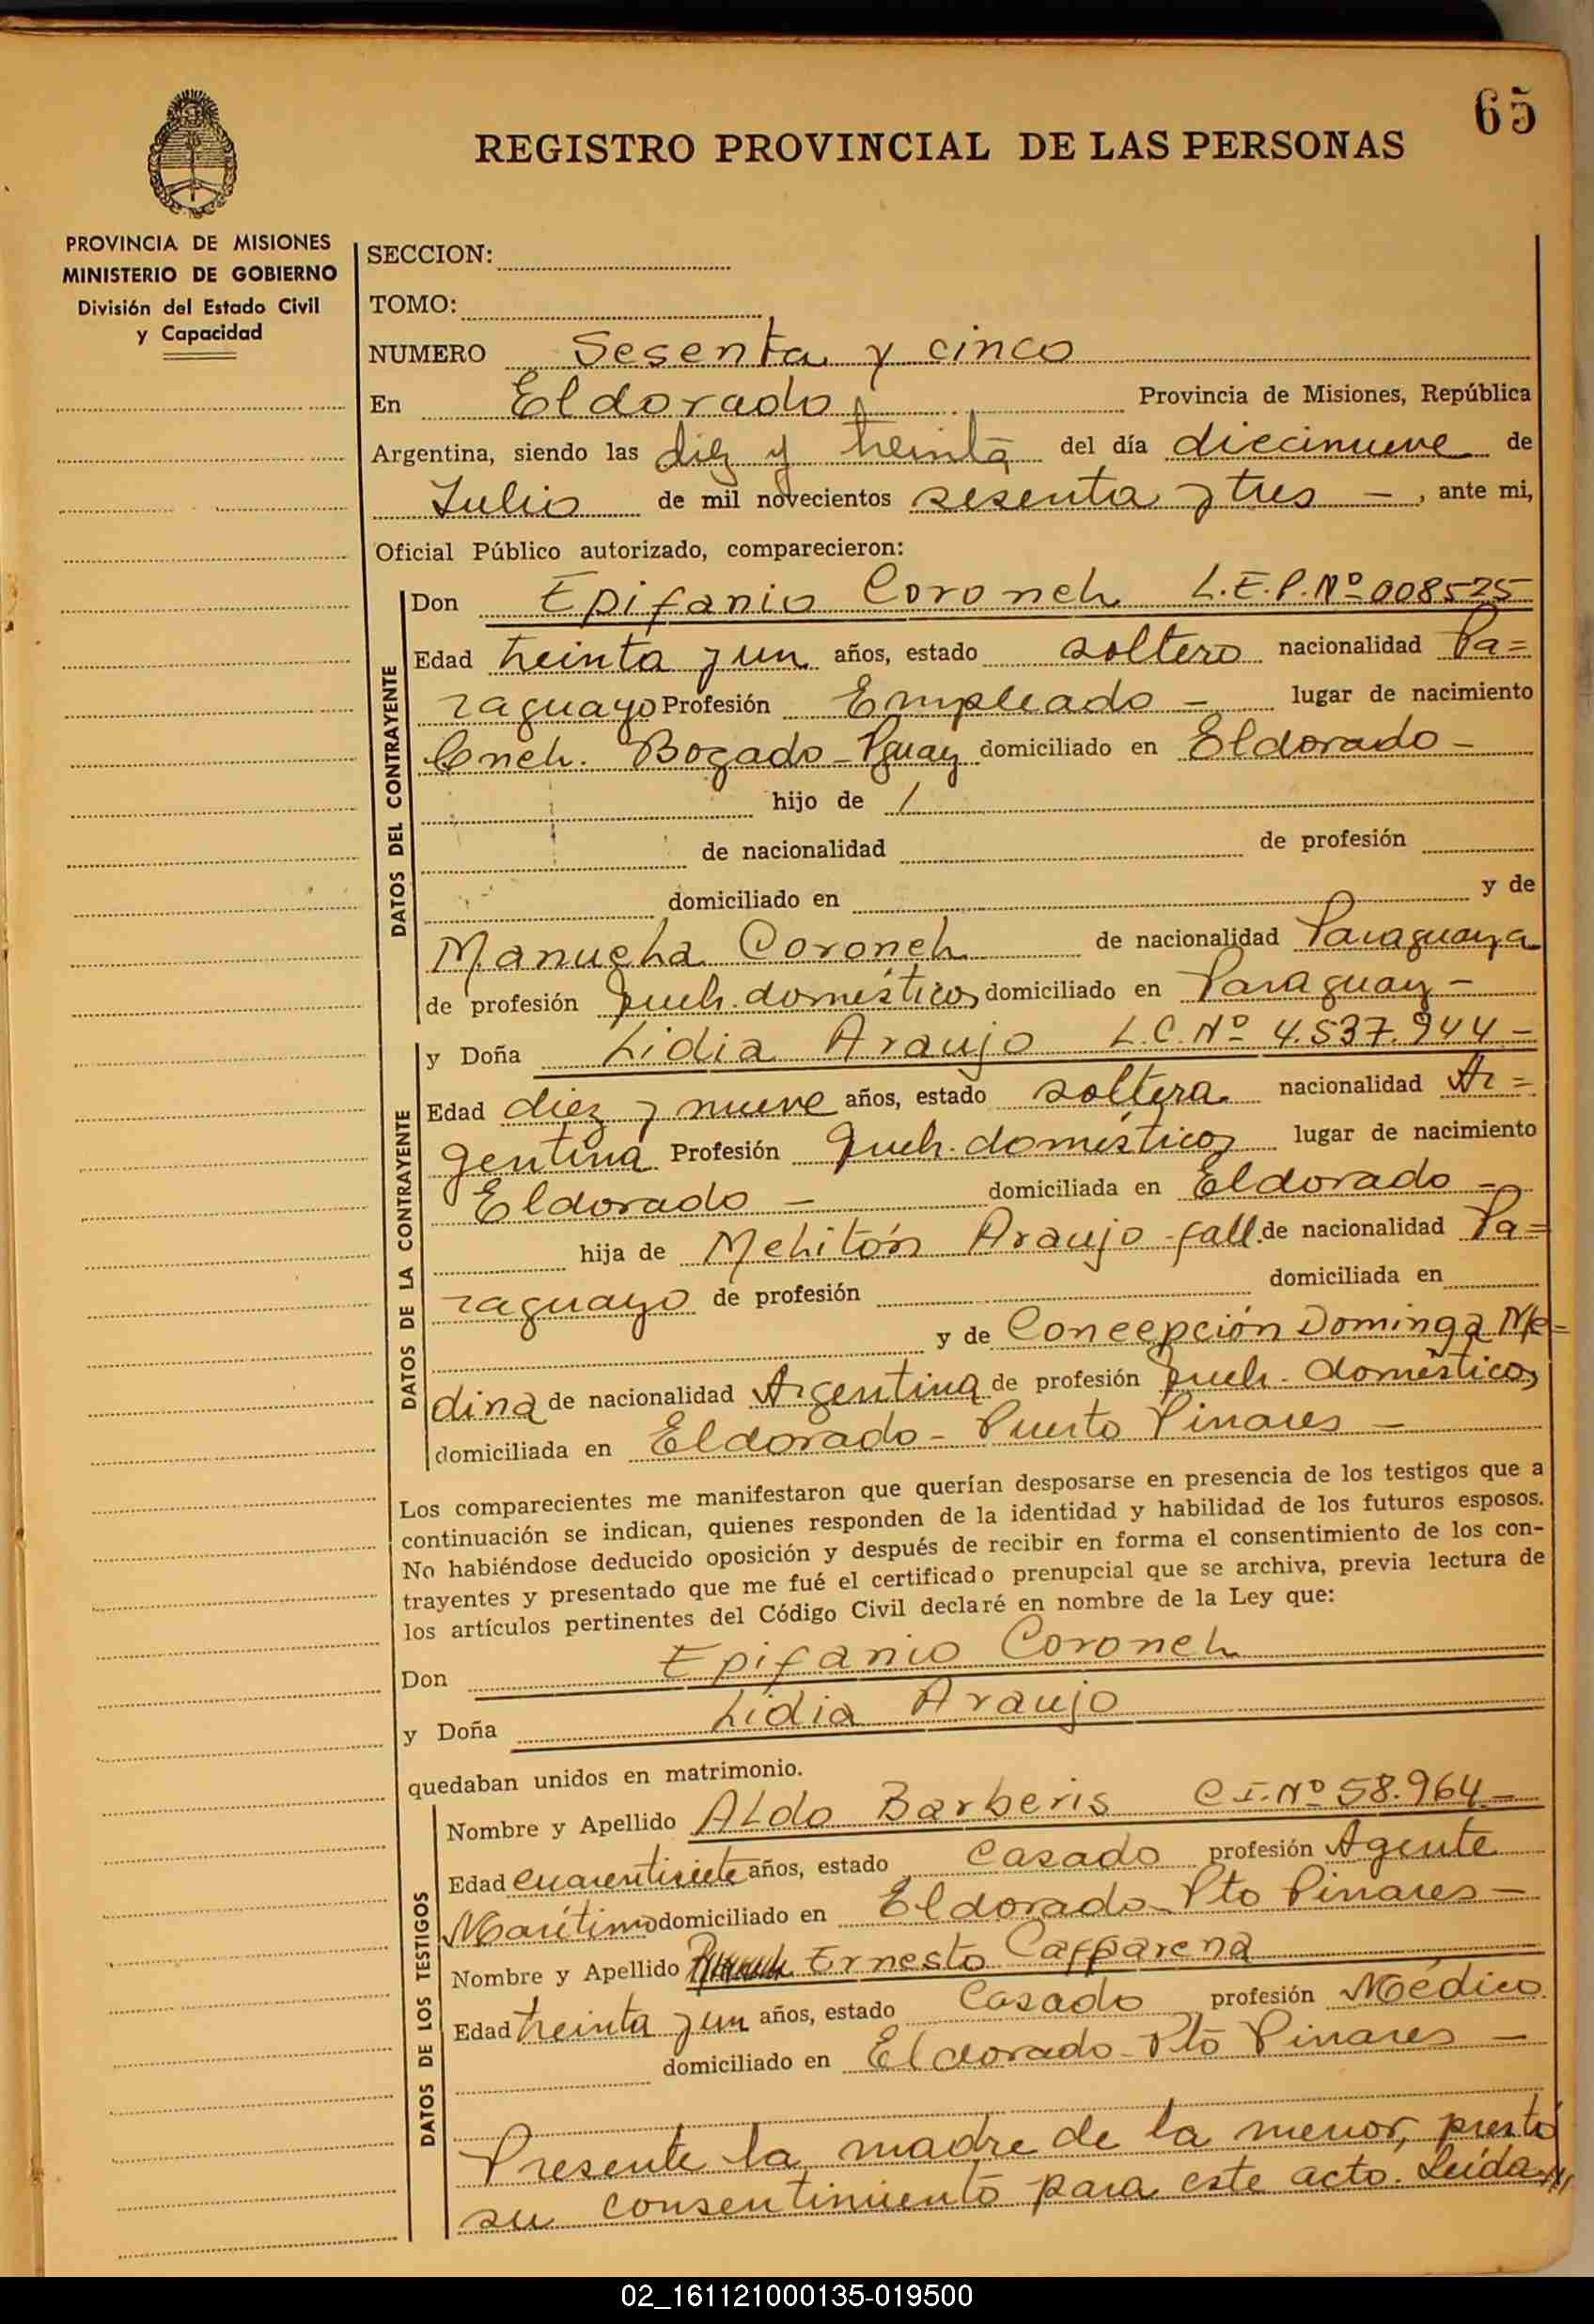 65
REGISTRO PROVINCIAL DE LAS PERSONAS
PROVINCIA DE MISIONES
MINISTERIO DE GOBIERNO
División del Estado Civil
y Capacidad
SECCION:
TOMO:
NUMERO Sesenta y cinco
En Eldorado, Provincia de Misiones, República
Argentina, siendo las diez y treinta del día diecinueve de
Julio de mil novecientos sesenta y tres -, ante mi,
Oficial Público autorizado, comparecieron:
DATOS DEL CONTRAYENTE
Don Epifanio Coronel L.E.P.Nº 008525
Edad treinta y un años, estado soltero nacionalidad Pa=
raguayo Profesión Empleado - lugar de nacimiento
Cnel. Bogado - Pguay domiciliado en Eldorado -
hijo de /
de nacionalidad de profesión
domiciliado en y de
Manuela Coronel de nacionalidad Paraguaya
de profesión Queh. domésticos domiciliado en Paraguay -
DATOS DE LA CONTRAYENTE
y Doña Lidia Araujo L.C.Nº 4.537.944 -
Edad diez y nueve años, estado soltera nacionalidad Ar=
gentina Profesión Queh. domésticos lugar de nacimiento
Eldorado - domiciliada en Eldorado -
hija de Melitón Araujo - fall. de nacionalidad Pa=
raguayo de profesión domiciliada en
y de Concepción Dominga Me=
dina de nacionalidad Argentina de profesión Queh. domésticos
domiciliada en Eldorado - Puerto Pinares -
Los comparecientes me manifestaron que querían desposarse en presencia de los testigos que a
continuación se indican, quienes responden de la identidad y habilidad de los futuros esposos.
No habiéndose deducido oposición y después de recibir en forma el consentimiento de los con-
trayentes y presentado que me fué el certificado prenupcial que se archiva, previa lectura de
los artículos pertinentes del Código Civil declaré en nombre de la Ley que:
Don Epifanio Coronel
y Doña Lidia Araujo
quedaban unidos en matrimonio.
DATOS DE LOS TESTIGOS
Nombre y Apellido Aldo Barberis C.I.Nº 58.964 -
Edad cuarentisiete años, estado Casado profesión Agente
Marítimo domiciliado en Eldorado - Pto Pinares -
Nombre y Apellido Ernesto Capparena
Edad treinta y un años, estado Casado profesión Médico
domiciliado en Eldorado - Pto Pinares -
Presente la madre de la menor, prestó
su consentimiento para este acto. Leída ///
02_161121000135-019500